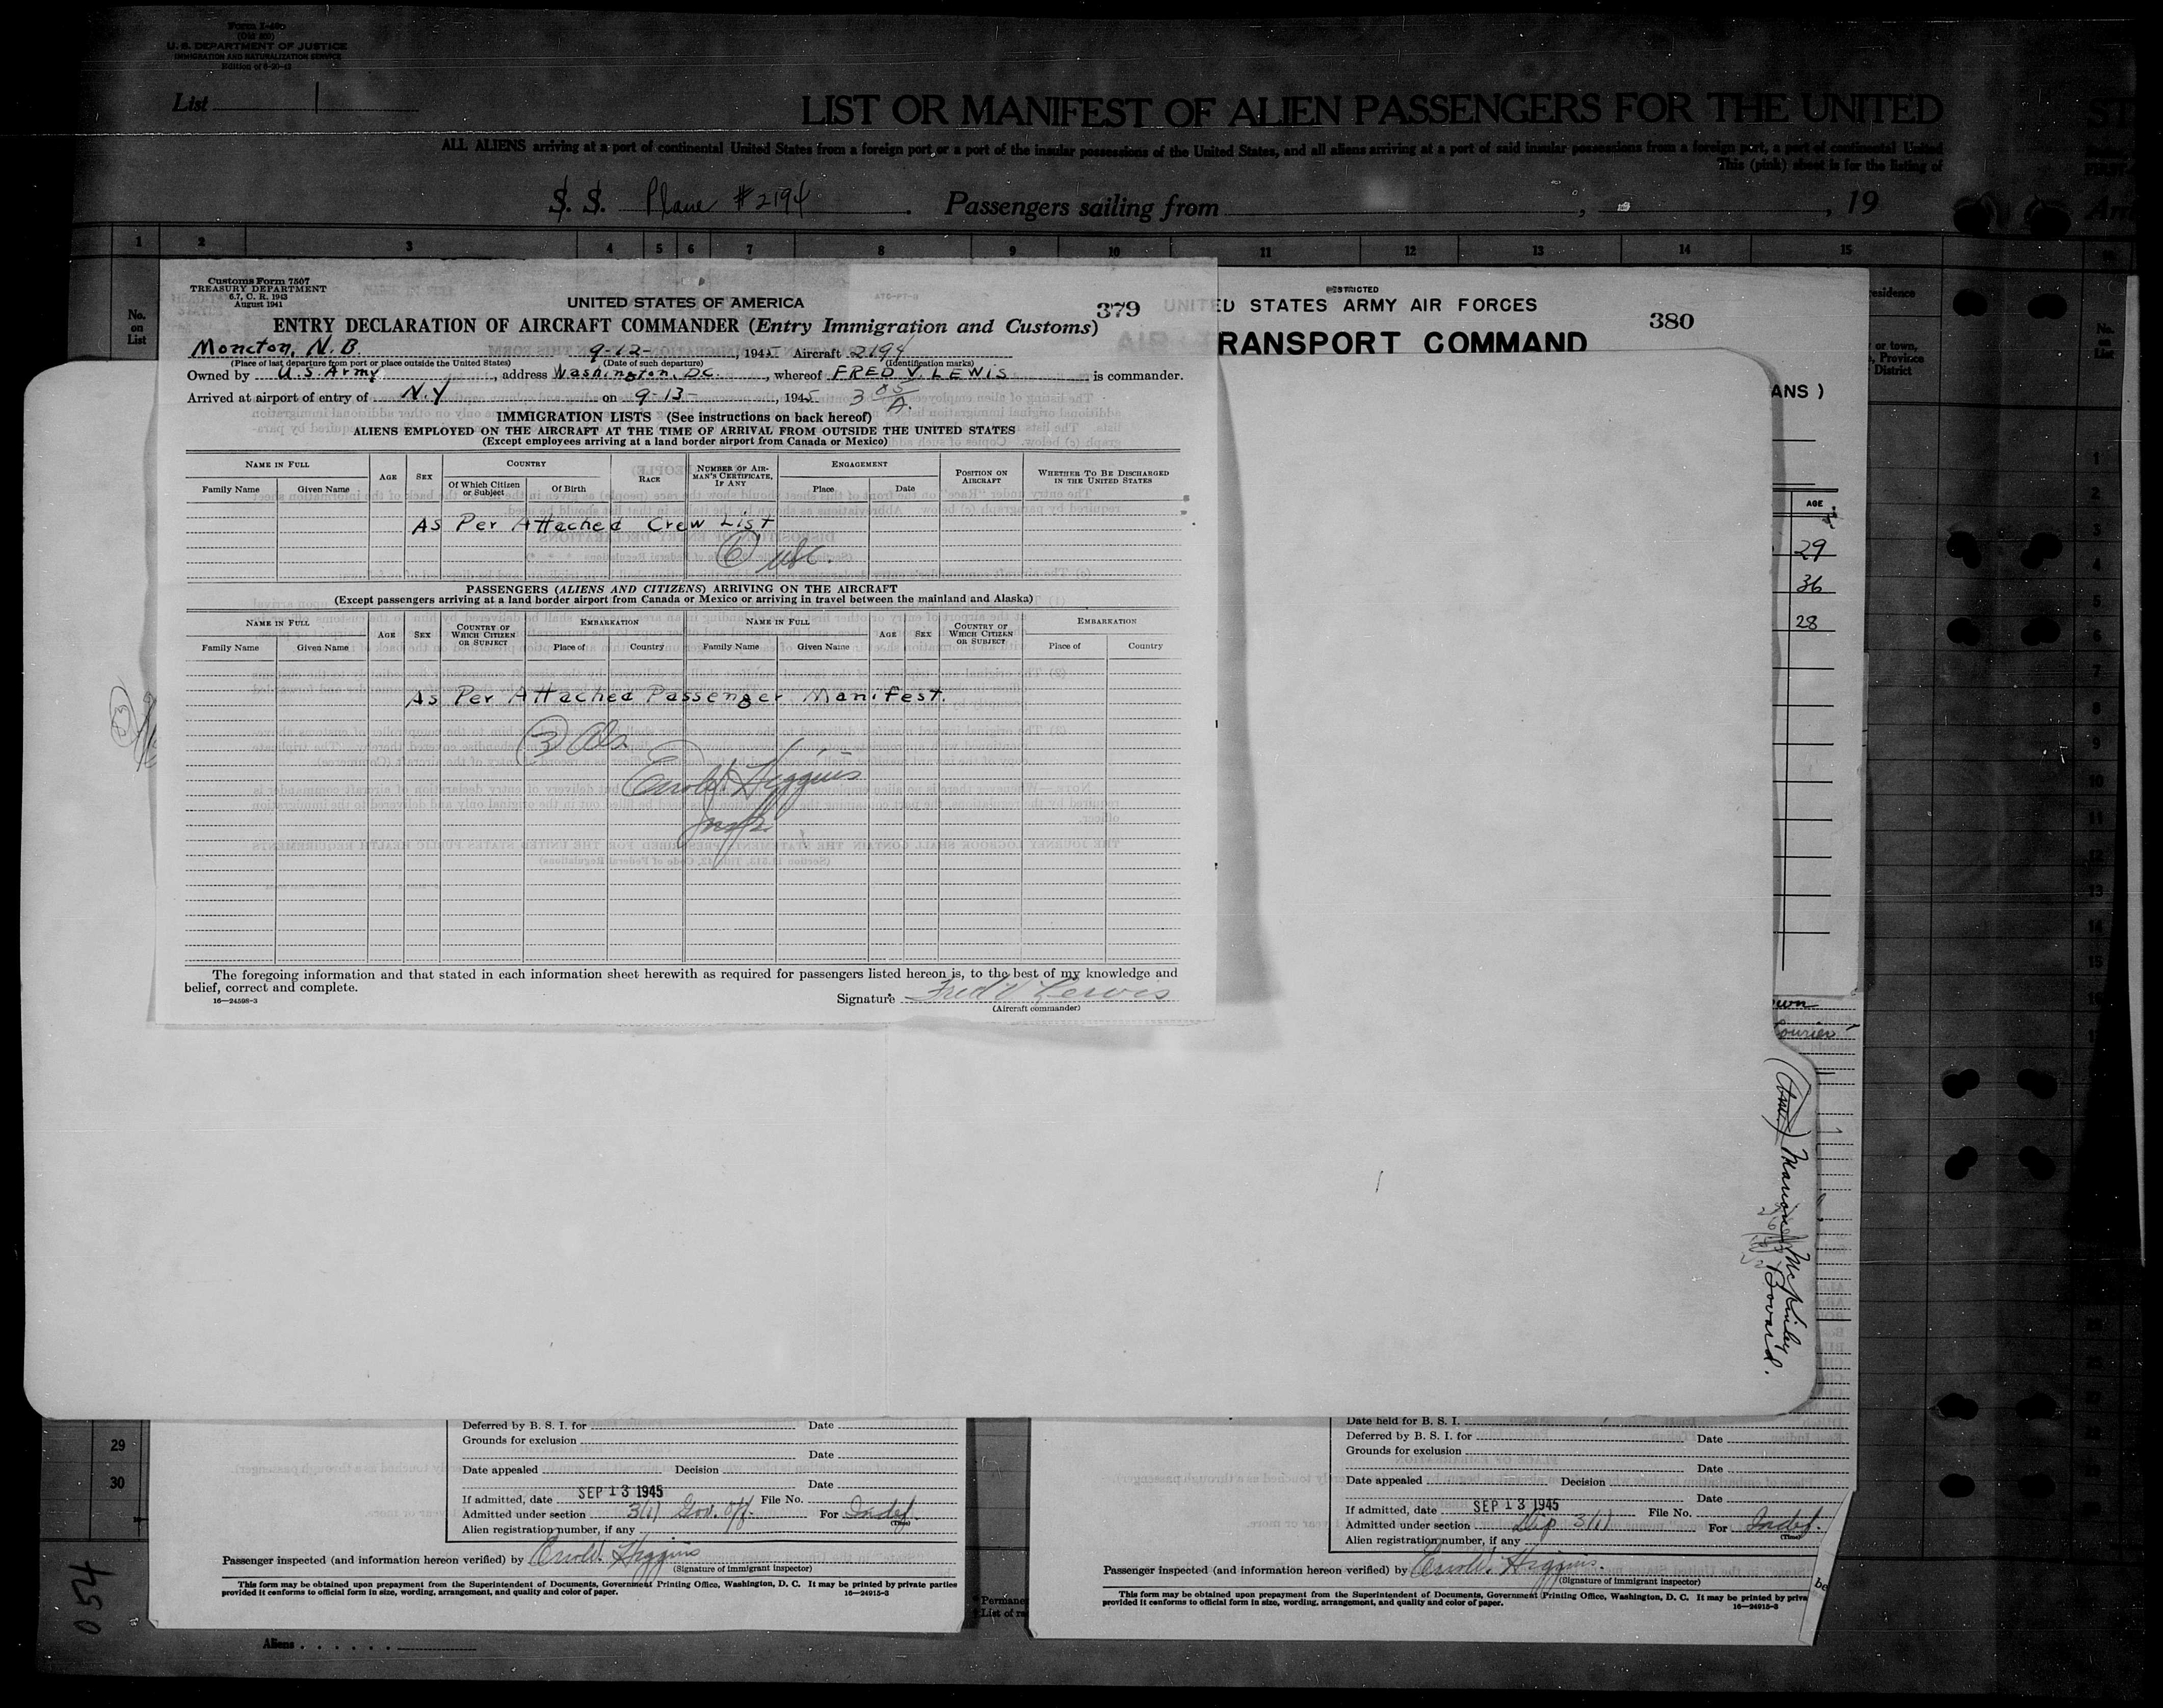 Form I-430
(Old 500)
U. S. DEPARTMENT OF JUSTICE
IMMIGRATION AND NATURALIZATION SERVICE
List 1
LIST OR MANIFEST OF ALIEN PASSENGERS FOR THE UNITED
ALL ALIENS arriving at a port of continental United States from a foreign port or a port of the insular possessions of the United States, and all aliens arriving at a port of said insular possessions from a foreign port, a port of continental United
This (pink) sheet is for the listing of
S. S. Plane #2194 . Passengers sailing from , , 19
1 2 3 4 5 6 7 8 9 10 11 12 13 14 15
No. on List
Customs Form 7507
TREASURY DEPARTMENT
6.7, C. R. 1943
August 1941
UNITED STATES OF AMERICA
379
ENTRY DECLARATION OF AIRCRAFT COMMANDER (Entry Immigration and Customs)
Moncton, N.B. 9-12- , 1945 Aircraft 2194
(Place of last departure from port or place outside the United States) (Date of such departure) (Identification marks)
Owned by U.S. Army , address Washington, D.C. , whereof FRED V. LEWIS is commander.
Arrived at airport of entry of N.Y on 9-13- , 1945. 3 05/A.
IMMIGRATION LISTS (See instructions on back hereof)
ALIENS EMPLOYED ON THE AIRCRAFT AT THE TIME OF ARRIVAL FROM OUTSIDE THE UNITED STATES
(Except employees arriving at a land border airport from Canada or Mexico)
NAME IN FULL AGE SEX COUNTRY RACE NUMBER OF AIRMAN'S CERTIFICATE, IF ANY ENGAGEMENT POSITION ON AIRCRAFT WHETHER TO BE DISCHARGED IN THE UNITED STATES
Family Name Given Name Of Which Citizen or Subject Of Birth Place Date
As Per Attached Crew List
6 usc.
PASSENGERS (ALIENS AND CITIZENS) ARRIVING ON THE AIRCRAFT
(Except passengers arriving at a land border airport from Canada or Mexico or arriving in travel between the mainland and Alaska)
NAME IN FULL AGE SEX COUNTRY OF WHICH CITIZEN OR SUBJECT EMBARKATION NAME IN FULL AGE SEX COUNTRY OF WHICH CITIZEN OR SUBJECT EMBARKATION
Family Name Given Name Place of Country Family Name Given Name Place of Country
As Per Attached Passenger Manifest.
3 Als
Higgins
The foregoing information and that stated in each information sheet herewith as required for passengers listed hereon is, to the best of my knowledge and
belief, correct and complete.
16—24598-3
Signature Fred V Lewis
(Aircraft commander)
RESTRICTED
UNITED STATES ARMY AIR FORCES
380
RANSPORT COMMAND
ANS )
AGE
29
36
28
Courier
Marion McKinley
Bovard.
29
30
054
Deferred by B. S. I. for Date
Grounds for exclusion
Date
Date appealed Decision
Date
If admitted, date SEP 13 1945 File No.
Admitted under section 3(1) Gov. Off. For Indef.
(Time)
Alien registration number, if any
Passenger inspected (and information hereon verified) by Higgins
(Signature of immigrant inspector)
This form may be obtained upon prepayment from the Superintendent of Documents, Government Printing Office, Washington, D. C. It may be printed by private parties
provided it conforms to official form in size, wording, arrangement, and quality and color of paper.
16—24915-3
Aliens
Date held for B. S. I.
Deferred by B. S. I. for Date
Grounds for exclusion
Date
Date appealed Decision
Date
If admitted, date SEP 13 1945 File No.
Admitted under section Dip 3(1) For Indef.
(Time)
Alien registration number, if any
Passenger inspected (and information hereon verified) by Higgins.
(Signature of immigrant inspector)
This form may be obtained upon prepayment from the Superintendent of Documents, Government Printing Office, Washington, D. C. It may be printed by priva
provided it conforms to official form in size, wording, arrangement, and quality and color of paper.
16—24915-3